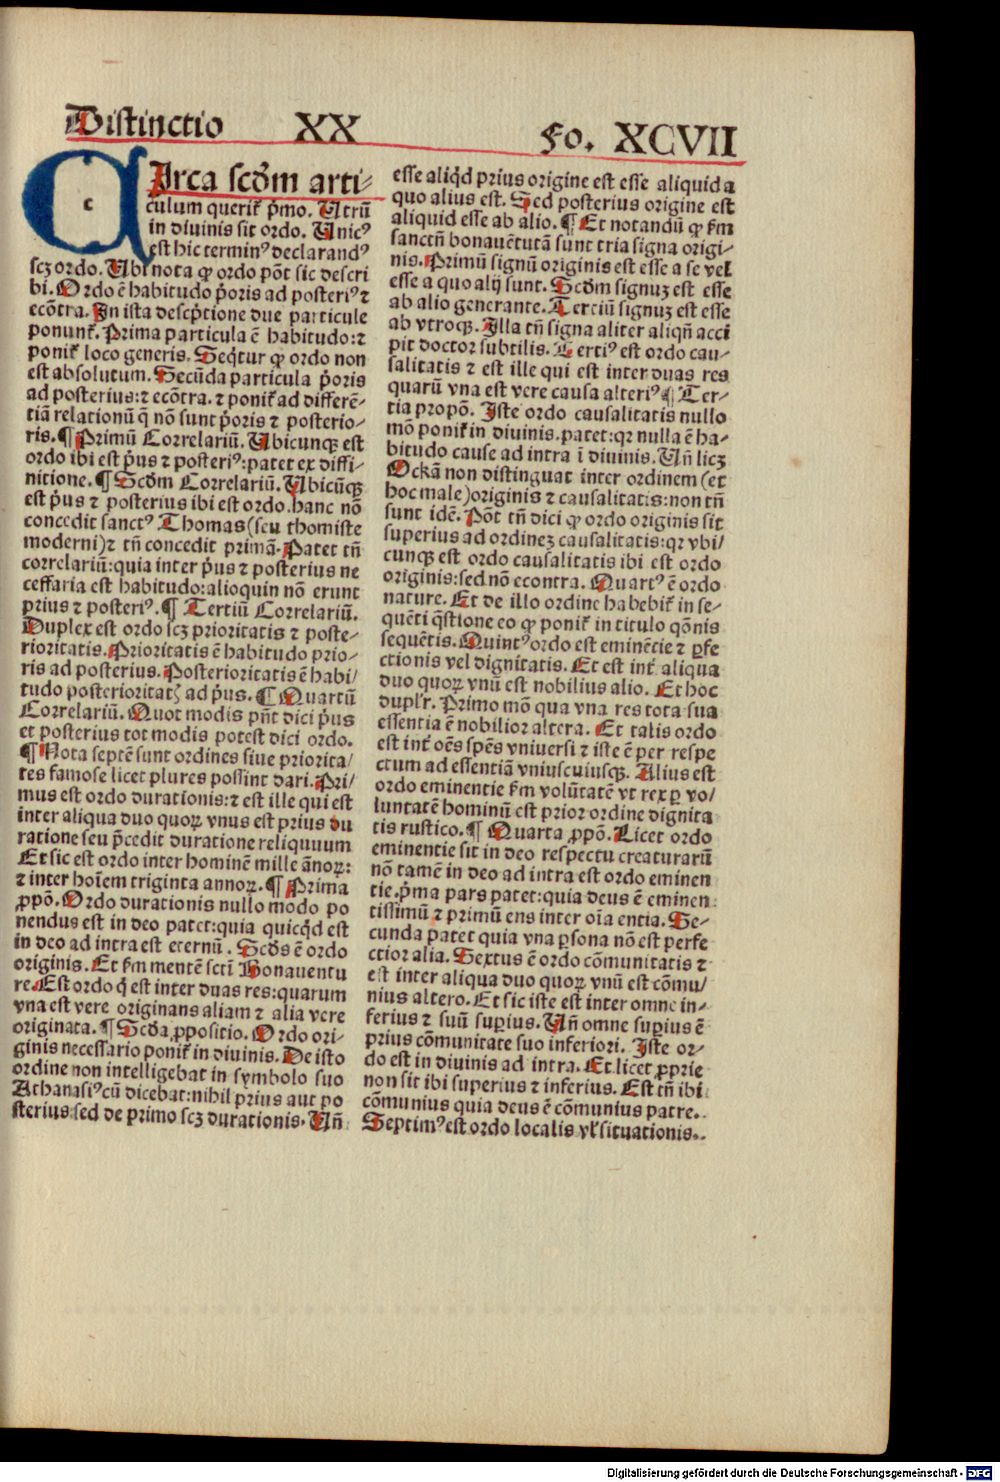 Distinctio XX Fo. XCVII
c
CIrca scd̄m arti-
culum querit᷑ p̄mo. Utrū
in diuinis sit ordo. Unicꝰ
est hic terminꝰ declarandꝰ
scꝫ ordo. Ubi nota ꝙ ordo pōt sic descri
bi. Ordo ē habitudo p̄oris ad posteriꝰ ⁊
ecōtra. In ista descp̄tione due particule
ponunt᷑. Prima particula ē habitudo: ⁊
ponit᷑ loco generis. Seq̄tur ꝙ ordo non
est absolutum. Secūda particula p̄oris
ad posterius: ⁊ ecōtra. ⁊ ponit᷑ ad differē-
tiā relationū q̄ nō sunt p̄oris ⁊ posterio-
ris. ¶ Primū Correlariū. Ubicunqꝫ est
ordo ibi est p̄us ⁊ posteriꝰ: patet ex diffi-
nitione. ¶ Scd̄m Correlariū. Ubicūqꝫ
est p̄us ⁊ posterius ibi est ordo. hanc nō
concedit sanctꝰ Thomas (seu thomiste
moderni) ⁊ tn̄ concedit primā. Patet tn̄
correlariū: quia inter p̄us ⁊ posterius ne
cessaria est habitudo: alioquin nō erunt
prius ⁊ posteriꝰ. ¶ Tertiū Correlariū.
Duplex est ordo scꝫ prioritatis ⁊ poste-
rioritatis. Prioritatis ē habitudo prio-
ris ad posterius. Posterioritatis ē habi/
tudo posterioritatꝭ ad p̄us. ¶ Quartū
Correlariū. Quot modis pn̄t dici p̄us
et posterius tot modis potest dici ordo.
¶ Nota septē sunt ordines siue priorita/
tes famose licet plures possint dari. Pri/
mus est ordo durationis: ⁊ est ille qui est
inter aliqua duo quoꝝ vnus est prius du
ratione seu p̄cedit duratione reliquum
Et sic est ordo inter hominē mille ānoꝝ:
⁊ inter hoīem triginta annoꝝ. ¶ Prima
ꝓpō. Ordo durationis nullo modo po
nendus est in deo patet: quia quicq̄d est
in deo ad intra est eternū. Scd̄s ē ordo
originis. Et ẜm mentē sctī Bonauentu
re. Est ordo q̄ est inter duas res: quarum
vna est vere originans aliam ⁊ alia vere
originata. ¶ Scd̄a ꝓpositio. Ordo ori-
ginis necessario ponit᷑ in diuinis. De isto
ordine non intelligebat in symbolo suo
Athanasiꝰ cū dicebat: nihil prius aut po
sterius: sed de primo scꝫ durationis. Un̄
esse aliq̄d prius origine est esse aliquid a
quo alius est. Sed posterius origine est
aliquid esse ab alio. ¶ Et notandū ꝙ ẜm
sanctū bonauētutā sunt tria signa origi-
nis. Primū signū originis est esse a se vel
esse a quo alij sunt. Scd̄m signuꝫ est esse
ab alio generante. Terciū signuꝫ est esse
ab vtroqꝫ. Illa tn̄ signa aliter aliqn̄ acci
pit doctor subtilis. Tertiꝰ est ordo cau-
salitatis ⁊ est ille qui est inter duas res
quarū vna est vere causa alteriꝰ ¶ Ter-
tia propō. Iste ordo causalitatis nullo
mō ponit᷑ in diuinis. patet: qꝛ nulla ē ha-
bitudo cause ad intra ī diuinis. Un̄ licꝫ
Ockā non distinguat inter ordinem (et
hoc male) originis ⁊ causalitatis: non tn̄
sunt idē. Pōt tn̄ dici ꝙ ordo originis sit
superius ad ordineꝫ causalitatis: qꝛ vbi/
cunqꝫ est ordo causalitatis ibi est ordo
originis: sed nō econtra. Quartꝰ ē ordo
nature. Et de illo ordine habebit᷑ in se-
quēti q̄stione eo ꝙ ponit᷑ in titulo q̄ōnis
sequētis. Quintꝰ ordo est eminētie ⁊ ꝑfe
ctionis vel dignitatis. Et est int᷑ aliqua
duo quoꝝ vnū est nobilius alio. Et hoc
dupl'r. Primo mō qua vna res tota sua
essentia ē nobilior altera. Et talis ordo
est int᷑ oēs sp̄es vniuersi ⁊ iste ē per respe
ctum ad essentiā vniuscuiusqꝫ. Alius est
ordo eminentie ẜm volūtatē vt rex ꝑ vo/
luntatē hominū est prior ordine dignita
tis rustico. ¶ Quarta ꝓpō. Licet ordo
eminentie sit in deo respectu creaturarū
nō tamē in deo ad intra est ordo eminen
tie. p̄ma pars patet: quia deus ē eminen
tissimū ⁊ primū ens inter oīa entia. Se-
cunda patet quia vna ꝑsona nō est perfe
ctior alia. Sextus ē ordo cōmunitatis ⁊
est inter aliqua duo quoꝝ vnū est cōmu/
nius altero. Et sic iste est inter omne in-
ferius ⁊ suū suꝑius. Un̄ omne suꝑius ē
prius cōmunitate suo inferiori. Iste or-
do est in diuinis ad intra. Et licet ꝓprie
non sit ibi superius ⁊ inferius. Est tn̄ ibi
cōmunius quia deus ē cōmunius patre.
Septimꝰ est ordo localis vl' situationis.
Digitalisierung gefördert durch die Deutsche Forschungsgemeinschaft - DFG